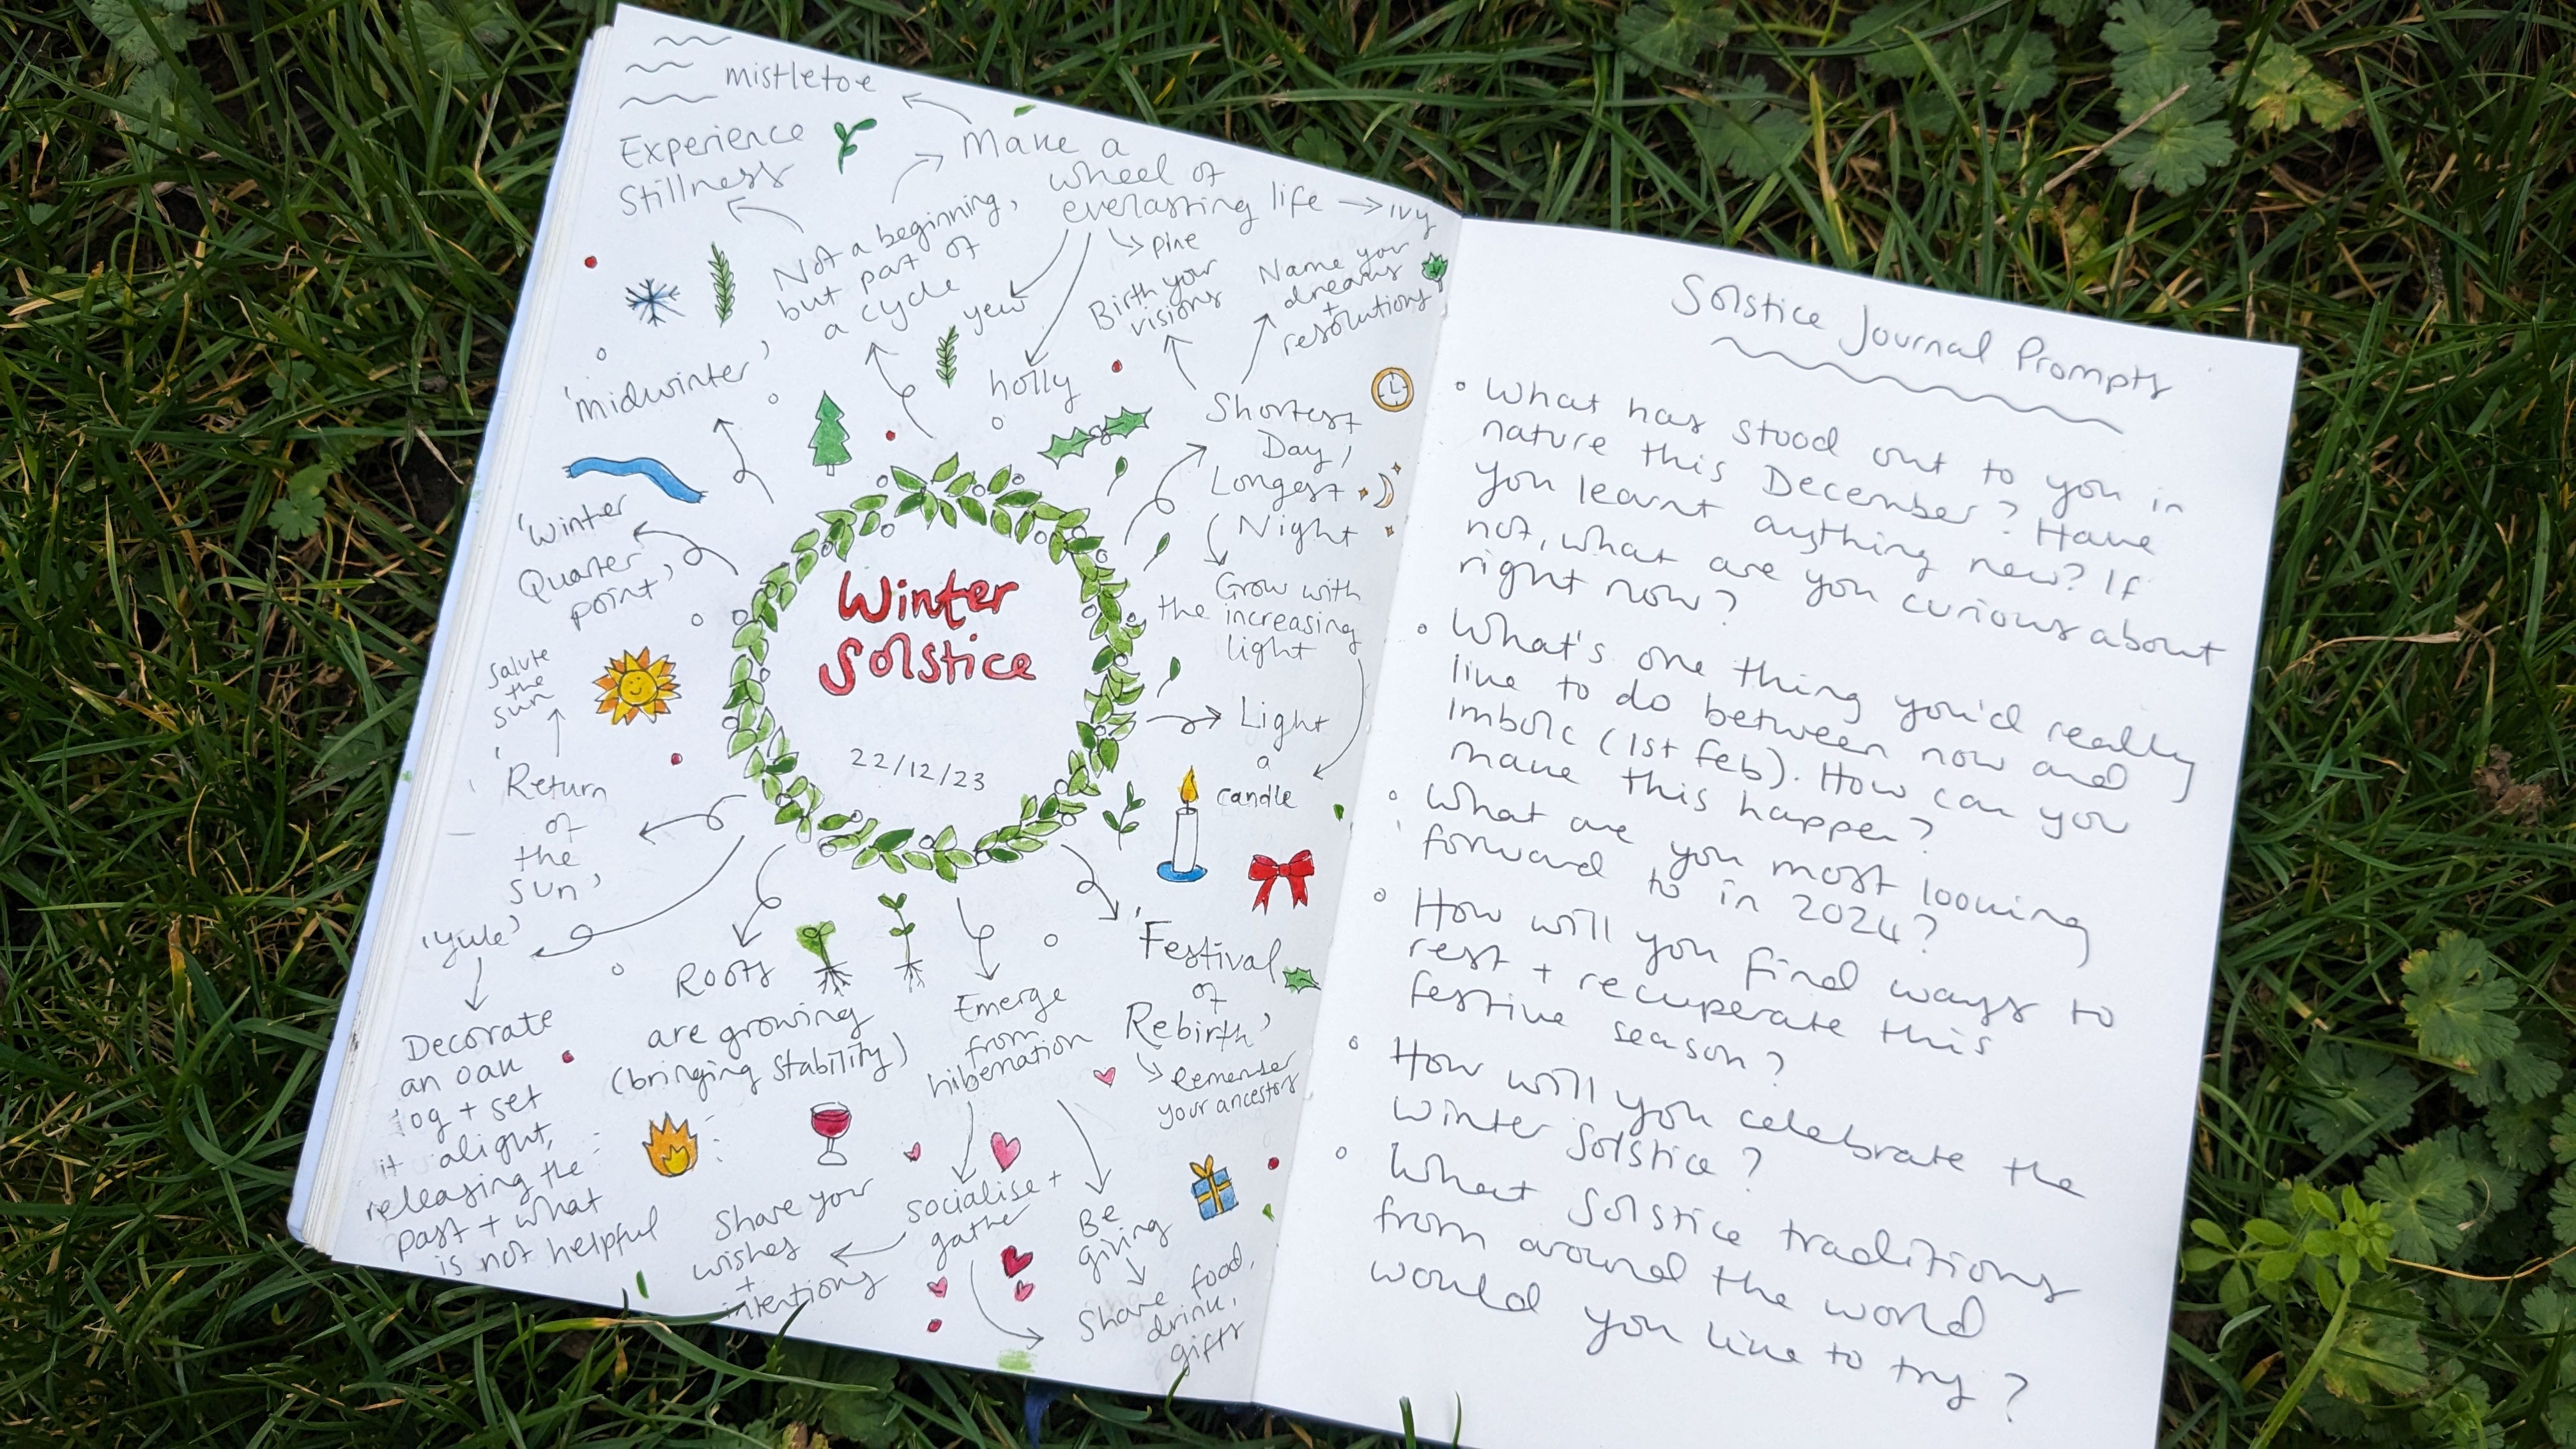 mistletoe
Experience
Stillness
Make a
wheel of
everlasting life → ivy
pine
yew
holly
Not a beginning,
but part of
a cycle
Birth your
visions
Name your
dreams
+
resolutions
'midwinter'
Shortest
Day,
Longest
Night
'Winter
Quarter
point'
Grow with
the increasing
light
Winter
Solstice
22/12/23
Salute
the
sun
Light
a
candle
'Return
of
the
sun'
'Yule'
Decorate
an oak
log + set
it alight,
releasing the
past + what
is not helpful
Roots
are growing
(bringing stability)
Emerge
from
hibernation
'Festival
of
Rebirth'
Remember
your ancestors
Share your
wishes
+
intentions
socialise +
gather
Be
giving
Share food,
drink,
gifts
Solstice Journal Prompts
◦ What has stood out to you in
nature this December? Have
you learnt anything new? If
not, what are you curious about
right now?
◦ What's one thing you'd really
like to do between now and
Imbolc (1st Feb). How can you
make this happen?
◦ What are you most looking
forward to in 2024?
◦ How will you find ways to
rest + recuperate this
festive season?
◦ How will you celebrate the
Winter Solstice?
◦ What Solstice traditions
from around the world
would you like to try?